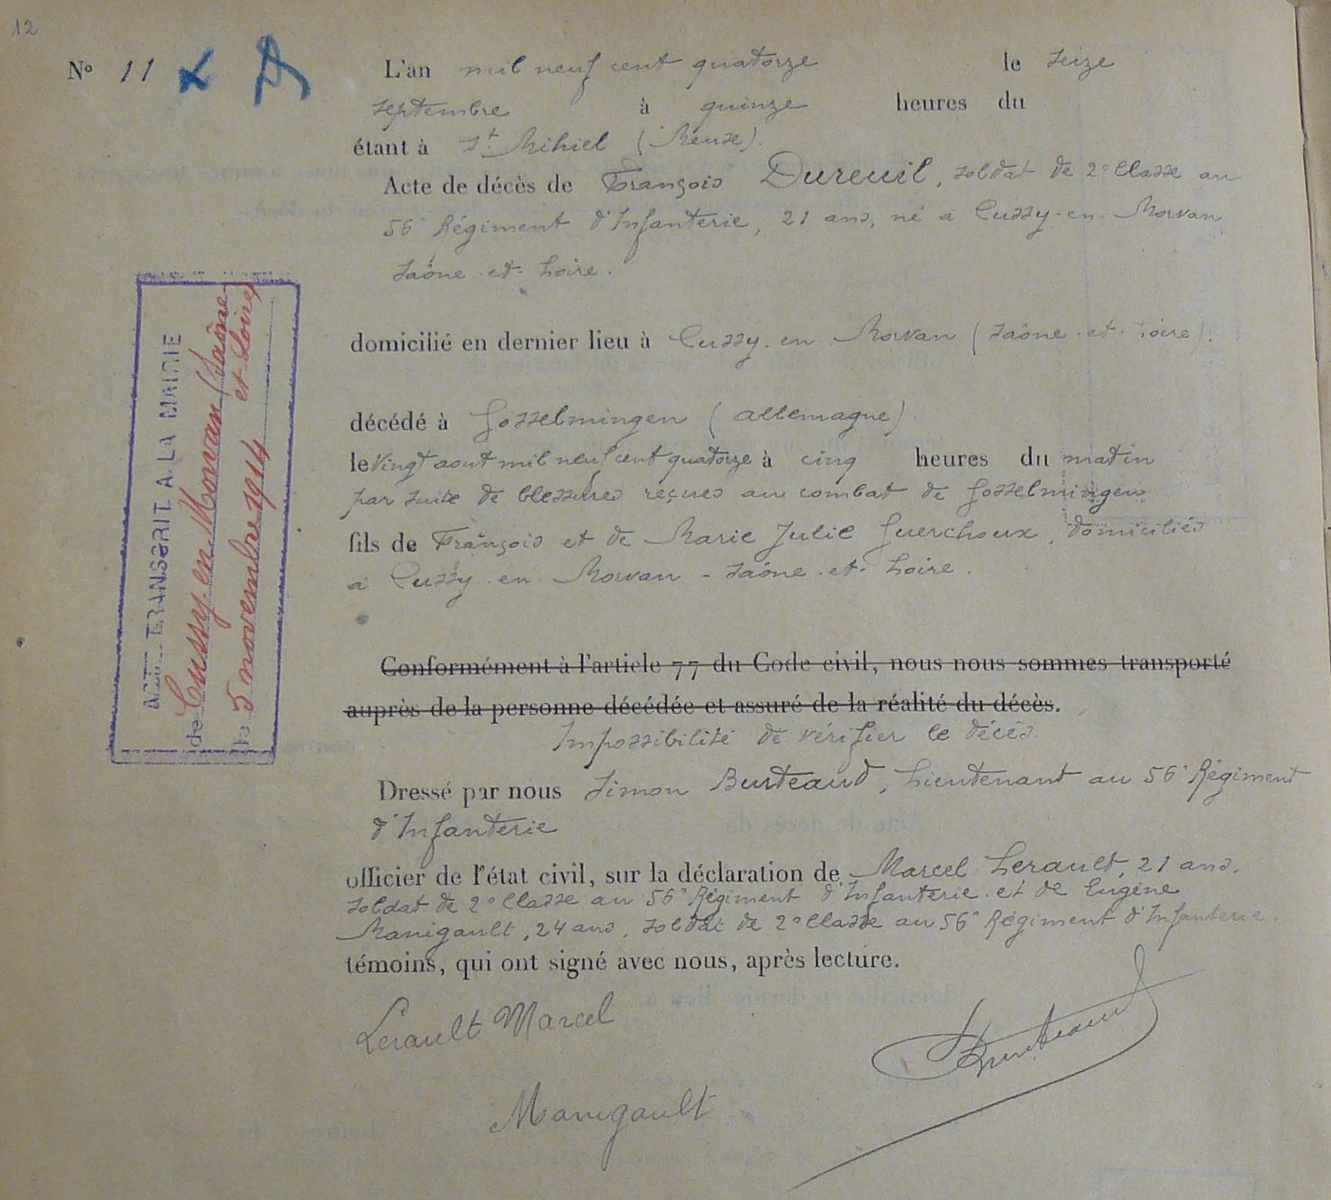 12
N° 11
L'an mil neuf cent quatorze le seize
septembre à quinze heures du
étant à St Mihiel (Meuse).
Acte de décès de François Dureuil, soldat de 2e Classe au
56e Régiment d'Infanterie, 21 ans, né à Cussy-en-Morvan
Saône-et-Loire.
domicilié en dernier lieu à Cussy-en Morvan (Saône-et-Loire).
décédé à Gosselmingen (Allemagne)
le Vingt aout mil neuf cent quatorze à cinq heures du matin
par suite de blessures reçues au combat de Gosselmingen
fils de François et de Marie Julie Guerchoux, domiciliés
à Cussy-en-Morvan - Saône-et-Loire.
Conformément à l'article 77 du Code civil, nous nous sommes transporté
auprès de la personne décédée et assuré de la réalité du décès.
Impossibilité de vérifier le décès
Dressé par nous Simon Burteaud, Lieutenant au 56e Régiment
d'Infanterie
officier de l'état civil, sur la déclaration de Marcel Lerault, 21 ans,
soldat de 2e Classe au 56e Régiment d'Infanterie et de Eugène
Manigault, 24 ans, soldat de 2e Classe au 56e Régiment d'Infanterie.
témoins, qui ont signé avec nous, après lecture.
Lerault Marcel
Burteaud
Manigault
ACTE TRANSCRIT A LA MAIRIE
de Cussy-en-Morvan (Saône-
et-Loire)
le 5 novembre 1914